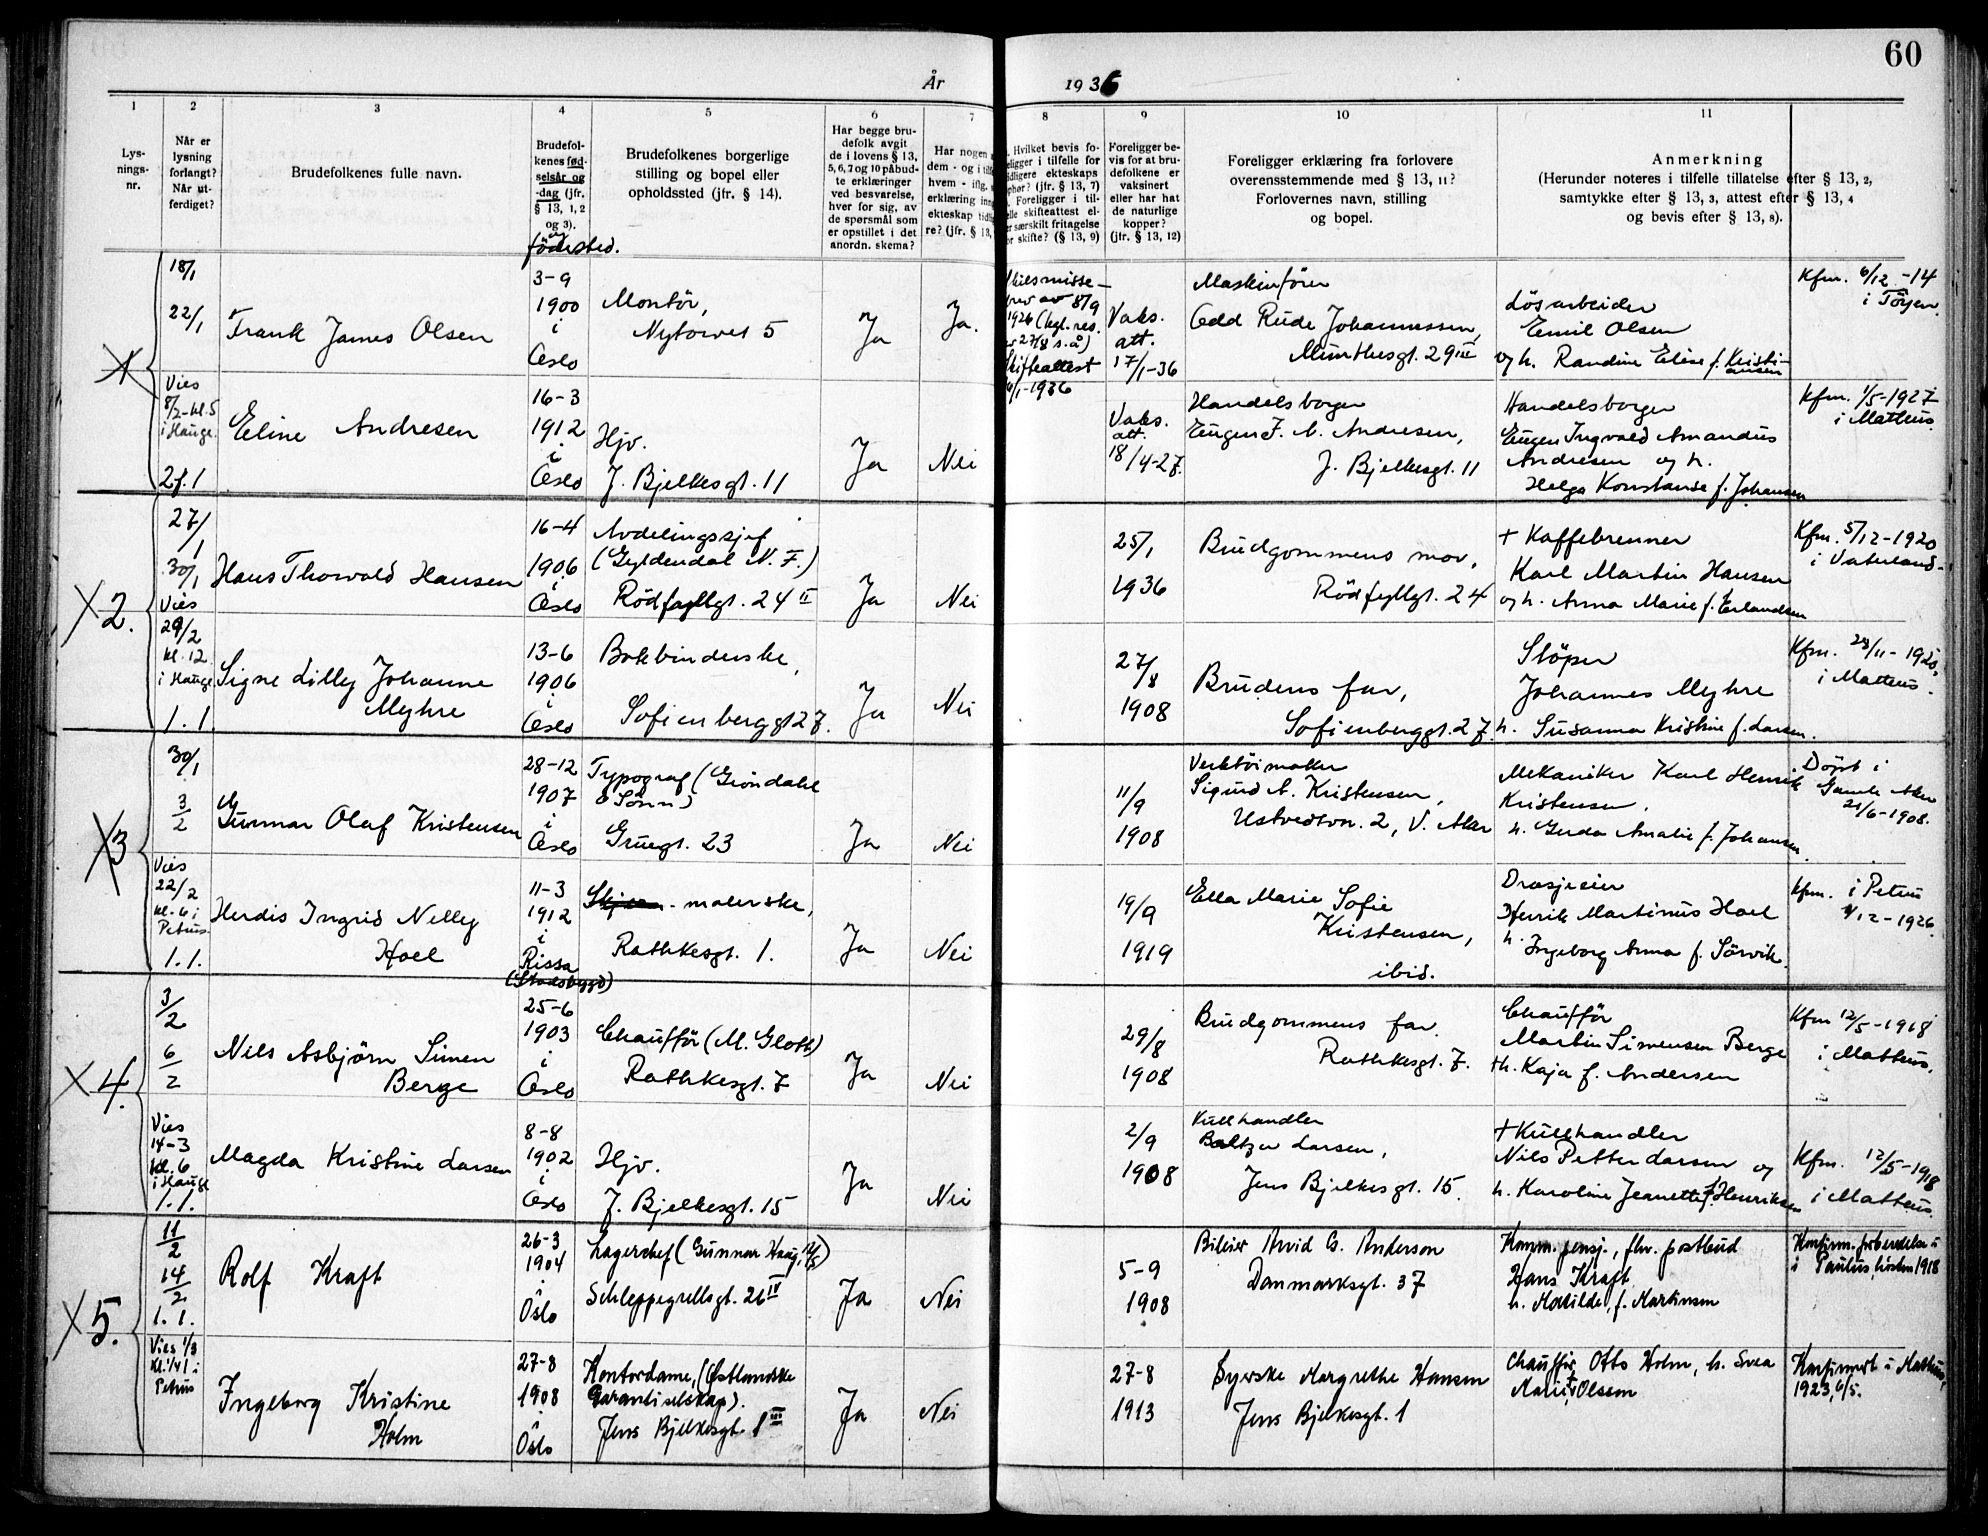 60
År 1936
1 2 3 4 5 6 7 8 9 10 11
Lys-
nings-
nr.
Når er
lysning
forlangt?
Når ut-
ferdiget?
Brudefolkenes fulle navn.
Brudefol-
kenes fød-
selsår og
-dag (jfr.
§ 13, 1, 2
og 3).
og
fødested.
Brudefolkenes borgerlige
stilling og bopel eller
opholdssted (jfr. § 14).
Har begge bru-
defolk avgit
de i lovens § 13,
5, 6, 7 og 10 påbud-
te erklæringer
ved besvarelse,
hver for sig, av
de spørsmål som
er opstillet i det
anordn. skema?
Har nogen
dem - og i
hvem - iflg.
erklæring
ekteskap
re? (jfr. § 13,
Hvilket bevis fo-
religger i tilfelle for
tidligere ekteskaps
ophør? (jfr. § 13, 7)
Foreligger i til-
felle skifteattest el-
er særskilt fritagelse
for skifte? (§ 13, 9)
Foreligger be-
vis for at bru-
defolkene er
vaksinert
eller har hat
de naturlige
kopper?
(jfr. § 13, 12)
Foreligger erklæring fra forlovere
overensstemmende med § 13, 11?
Forlovernes navn, stilling
og bopel.
Anmerkning
(Herunder noteres i tilfelle tillatelse efter § 13, 2,
samtykke efter § 13, 3, attest efter § 13, 4
og bevis efter § 13, 8).
1
18/1
22/1
Frank James Olsen
3-9
1900
i
Oslo
Montör,
Nytorvet 5
Ja
Ja.
1926 (kgl. res.
27/8 s.å)
Skifteattest
/1-1936
Vaks.
att.
17/1-36
Maskinförer
Odd Rude Johannessen,
Munthesgt. 29 III
Lösarbeider
Emil Olsen
og h. Randine Elise f. Kristi-
ansen
Kfm. 6/12-14
i Töyen
Vies
8/2-kl.5
i Hauge.
2 f. 1
Eline Andresen
16-3
1912
i
Oslo
Hjv.
J. Bjelkesgt. 11
Ja
Nei
Vaks.
att.
18/4-27.
Handelsborger
Eugen I. A. Andresen,
J. Bjelkesgt. 11
Handelsborger
Eugen Ingvald Amandus
Andresen og h.
Helga Konstanse f. Johansen
Kfm. 1/5-1927
i Matteus.
2.
27/1
30/1
Hans Thorvald Hansen
16-4
1906
i
Oslo
Avdelingssjef
(Gyldendal N. F.)
Rödfyllgt. 24 II
Ja
Nei
25/1
1936
Brudgommens mor,
Rödfyllgt. 24
+ Kaffebrenner
Karl Martin Hansen
og h. Anna Marie f. Erlandsen
Kfm. 5/12-1920
i Vaterland
Vies
29/2
kl. 12
i Hauge
1. 1.
Signe Lilly Johanne
Myhre
13-6
1906
i
Oslo
Bokbinderske,
Sofienberggt 27.
Ja
Nei
27/8
1908
Brudens far,
Sofienberggt. 27.
Stöper
Johannes Myhre
h. Susanna Kristine f. Larsen.
Kfm. 28/11-1920,
i Matteus.
3
30/1
3/2
Gunnar Olaf Kristensen
28-12
1907
i
Oslo
Typograf (Gröndahl
& Sönn)
Gruegt. 23
Ja
Nei
11/9
1908
Verktöimaker
Sigurd A. Kristensen,
Ustvedtvn. 2, V. Aker
Mekaniker Karl Henrik
Kristensen,
h. Gerda Amalie f. Johansen.
Döpt i
Gamle Aker
21/6-1908.
Vies
22/2
kl. 6 i
Petrus.
1. 1.
Herdis Ingrid Nelly
Hoel
11-3
1912
i
Rissa
(Stadsbygd)
-malerske,
Rathkesgt. 1.
Ja
Nei
19/9
1919
Ella Marie Sofie
Kristensen,
ibid.
Drosjeeier
Henrik Martinus Hoel
h. Ingeborg Anna f. Sörvik.
Kfm. i Petrus
/12-1926.
4.
3/2
6/2
Nils Asbjörn Simen
Berge
25-6
1903
i
Oslo
Chaufför (M. Gloth)
Rathkesgt. 7
Ja
Nei
29/8
1908
Brudgommens far.
Rathkesgt. 7.
Chaufför
Martin Simensen Berge
+ h. Kaja f. Andersen
Kfm 12/5-1918
i Matteus.
Vies
14-3
kl. 6
i Hauge
1. 1.
Magda Kristine Larsen
8-8
1902
i
Oslo
Hjv.
J. Bjelkesgt. 15
Ja
Nei
2/9
1908
Kullhandler
Baltzer Larsen,
Jens Bjelkesgt. 15.
+ Kullhandler
Nils Petter Larsen og
h. Karoline Jeanette f. Henriksen
Kfm. 12/5-1918
i Matteus.
5.
11/2
14/2
1. 1.
Rolf Kraft
26-3
1904
i
Oslo
Lagerchef (Gunnar Haag, )
Schleppegrellsgt. 26 IV
Ja
Nei
5-9
1908
Bileier Arvid G. Anderson
Danmarksgt. 37
Komm. pensj., fhv. postbud
Hans Kraft
h. Matilde, f. Martinsen
Konfirm.forberedelse i
i Paulus, hösten 1918
Vies 1/3
kl. 1/4 1 i
Petrus
Ingeborg Kristine
Holm
27-8
1908
i
Oslo
Kontordame, (Østlandske
Garantiselskap).
Jens Bjelkesgt. 1 III
Ja
Nei
27-8
1913
Syerske Margrethe Hansen
Jens Bjelkesgt. 1
Chaufför, Otto Holm, h. Svea
Marie, f. Olsson
Konfirmert i Matteus,
1923, 6/5.